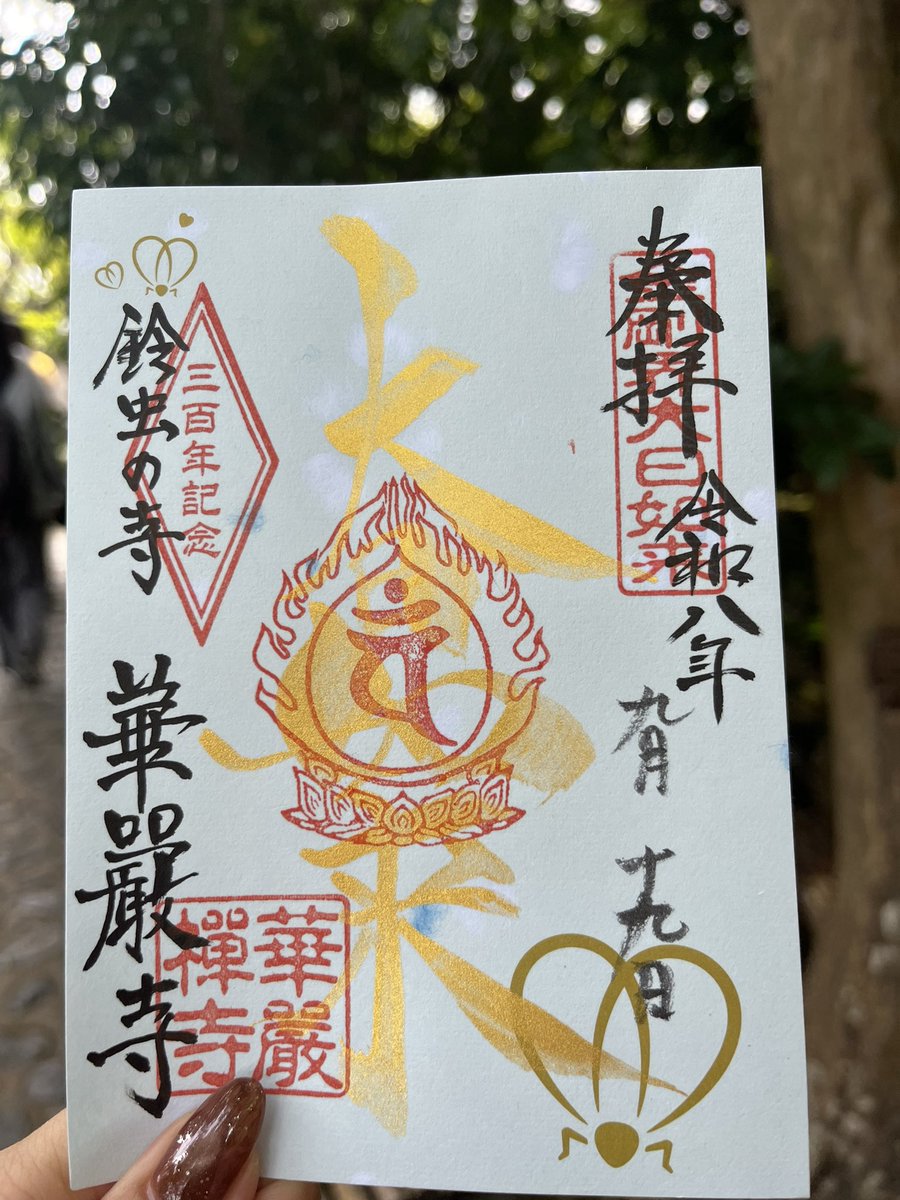 奉拝
大日如来
令和八年
九月
十九日
大日如来
鈴虫の寺
三百年記念
華嚴寺
華嚴
禪寺